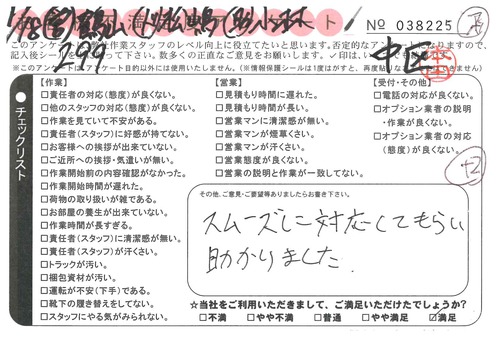 1/18
№ 038225
299
このアンケートは弊社作業スタッフのレベル向上に役立てたいと思います。否定的な
記入後シールを
下さい。数多くの正直なご意見をお願いします。✓印は、
※このアンケートは
アンケート目的以外には使用いたしません。(※情報保護シールは1度はがすと、再度貼り
チェックリスト
【作業】
□責任者の対応(態度)が良くない。
□他のスタッフの対応(態度)が良くない。
□作業を見ていて不安がある。
□責任者(スタッフ)に好感が持てない。
□お客様への挨拶が出来ていない。
□ご近所への挨拶・気遣いが無い。
□作業開始前の内容確認がなかった。
□作業開始時間が遅れた。
□荷物の取り扱いが雑である。
□お部屋の養生が出来ていない。
□作業時間が長すぎる。
□責任者(スタッフ)に清潔感が無い。
□責任者(スタッフ)が汗くさい。
□トラックが汚い。
□梱包資材が汚い。
□運転が不安(下手)である。
□靴下の履き替えをしてない。
□スタッフにやる気がみられない。
【営業】
□見積もり時間に遅れた。
□見積もり時間が長い。
□営業マンに清潔感が無い。
□営業マンが煙草くさい。
□営業マンが汗くさい。
□営業態度が良くない。
□営業の説明と作業が一致してない。
【受付・その他】
□電話の対応が良くない。
□オプション業者の説明
・作業が良くない。
□オプション業者の対応
(態度)が良くない。
+2
その他、ご意見・ご要望等ありましたらお書き下さい。
スムーズに対応してもらい
助かりました
☆当社をご利用いただきまして、ご満足いただけたでしょうか?
□不満 □やや不満 □普通 □やや満足 ☑満足